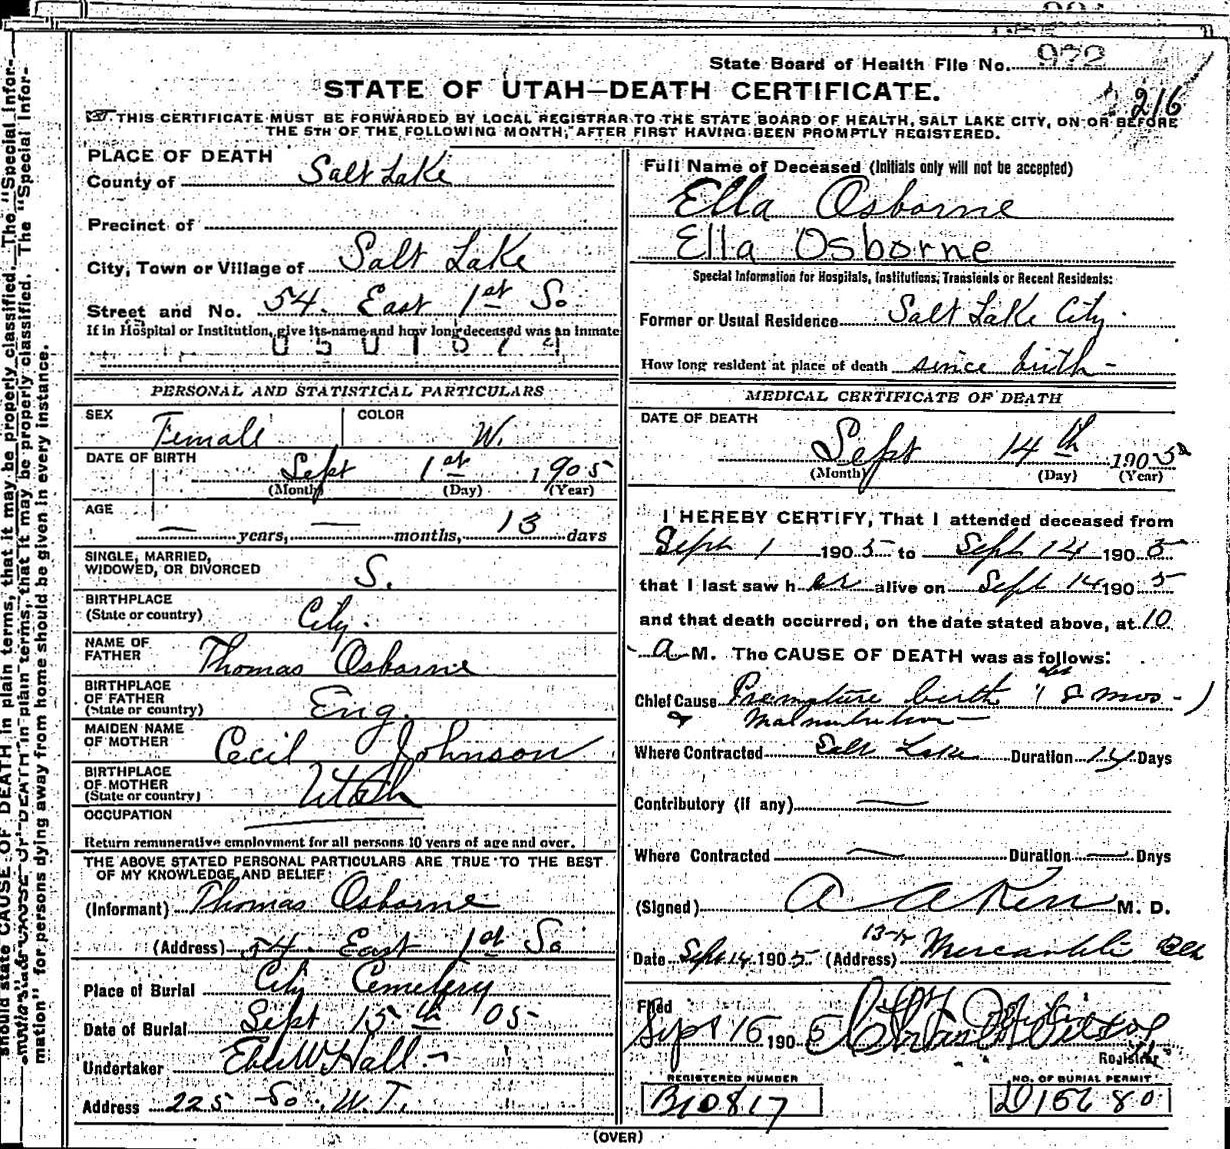 State Board of Health File No. 972
STATE OF UTAH—DEATH CERTIFICATE.
216
THIS CERTIFICATE MUST BE FORWARDED BY LOCAL REGISTRAR TO THE STATE BOARD OF HEALTH, SALT LAKE CITY, ON OR BEFORE
THE 5TH OF THE FOLLOWING MONTH, AFTER FIRST HAVING BEEN PROMPTLY REGISTERED.
PLACE OF DEATH
County of Salt Lake
Precinct of
City, Town or Village of Salt Lake
Street and No. 54. East 1st So
If in Hospital or Institution, give its name and how long deceased was an inmate
PERSONAL AND STATISTICAL PARTICULARS
SEX Female
COLOR W.
DATE OF BIRTH Sept 1st 1905
(Month) (Day) (Year)
AGE — years, — months, 13 days
SINGLE, MARRIED,
WIDOWED, OR DIVORCED S.
BIRTHPLACE
(State or country) City.
NAME OF
FATHER Thomas Osborne
BIRTHPLACE
OF FATHER
(State or country) Eng.
MAIDEN NAME
OF MOTHER Cecil Johnson
BIRTHPLACE
OF MOTHER
(State or country) Utah
OCCUPATION
Return remunerative employment for all persons 10 years of age and over.
THE ABOVE STATED PERSONAL PARTICULARS ARE TRUE TO THE BEST
OF MY KNOWLEDGE AND BELIEF
(Informant) Thomas Osborne
(Address) 54. East 1st So
Place of Burial City Cemetery
Date of Burial Sept 15th '05
Undertaker Eber W Hall
Address 225 So. W. T.
Full Name of Deceased (Initials only will not be accepted)
Ella Osborne
Ella Osborne
Special Information for Hospitals, Institutions, Transients or Recent Residents:
Former or Usual Residence Salt Lake City.
How long resident at place of death since birth -
MEDICAL CERTIFICATE OF DEATH
DATE OF DEATH
Sept 14th 1905
(Month) (Day) (Year)
I HEREBY CERTIFY, That I attended deceased from
Sept 1 1905 to Sept 14 1905
that I last saw her alive on Sept 14 1905
and that death occurred, on the date stated above, at 10
a M. The CAUSE OF DEATH was as follows:
Chief Cause Premature birth (8 mos-)
& Malnutrition
Where Contracted Salt Lake Duration 14 Days
Contributory (if any) —
Where Contracted — Duration — Days
(Signed) M. D.
Date Sept 14 1905 (Address) Mercantile Blk
Filed
Sept 16 1905
Registrar
REGISTERED NUMBER
B10817
NO. OF BURIAL PERMIT
D15680
(OVER)
should state CAUSE OF DEATH in plain terms, that it may be properly classified. The "Special Infor-
mation" for persons dying away from home should be given in every instance.